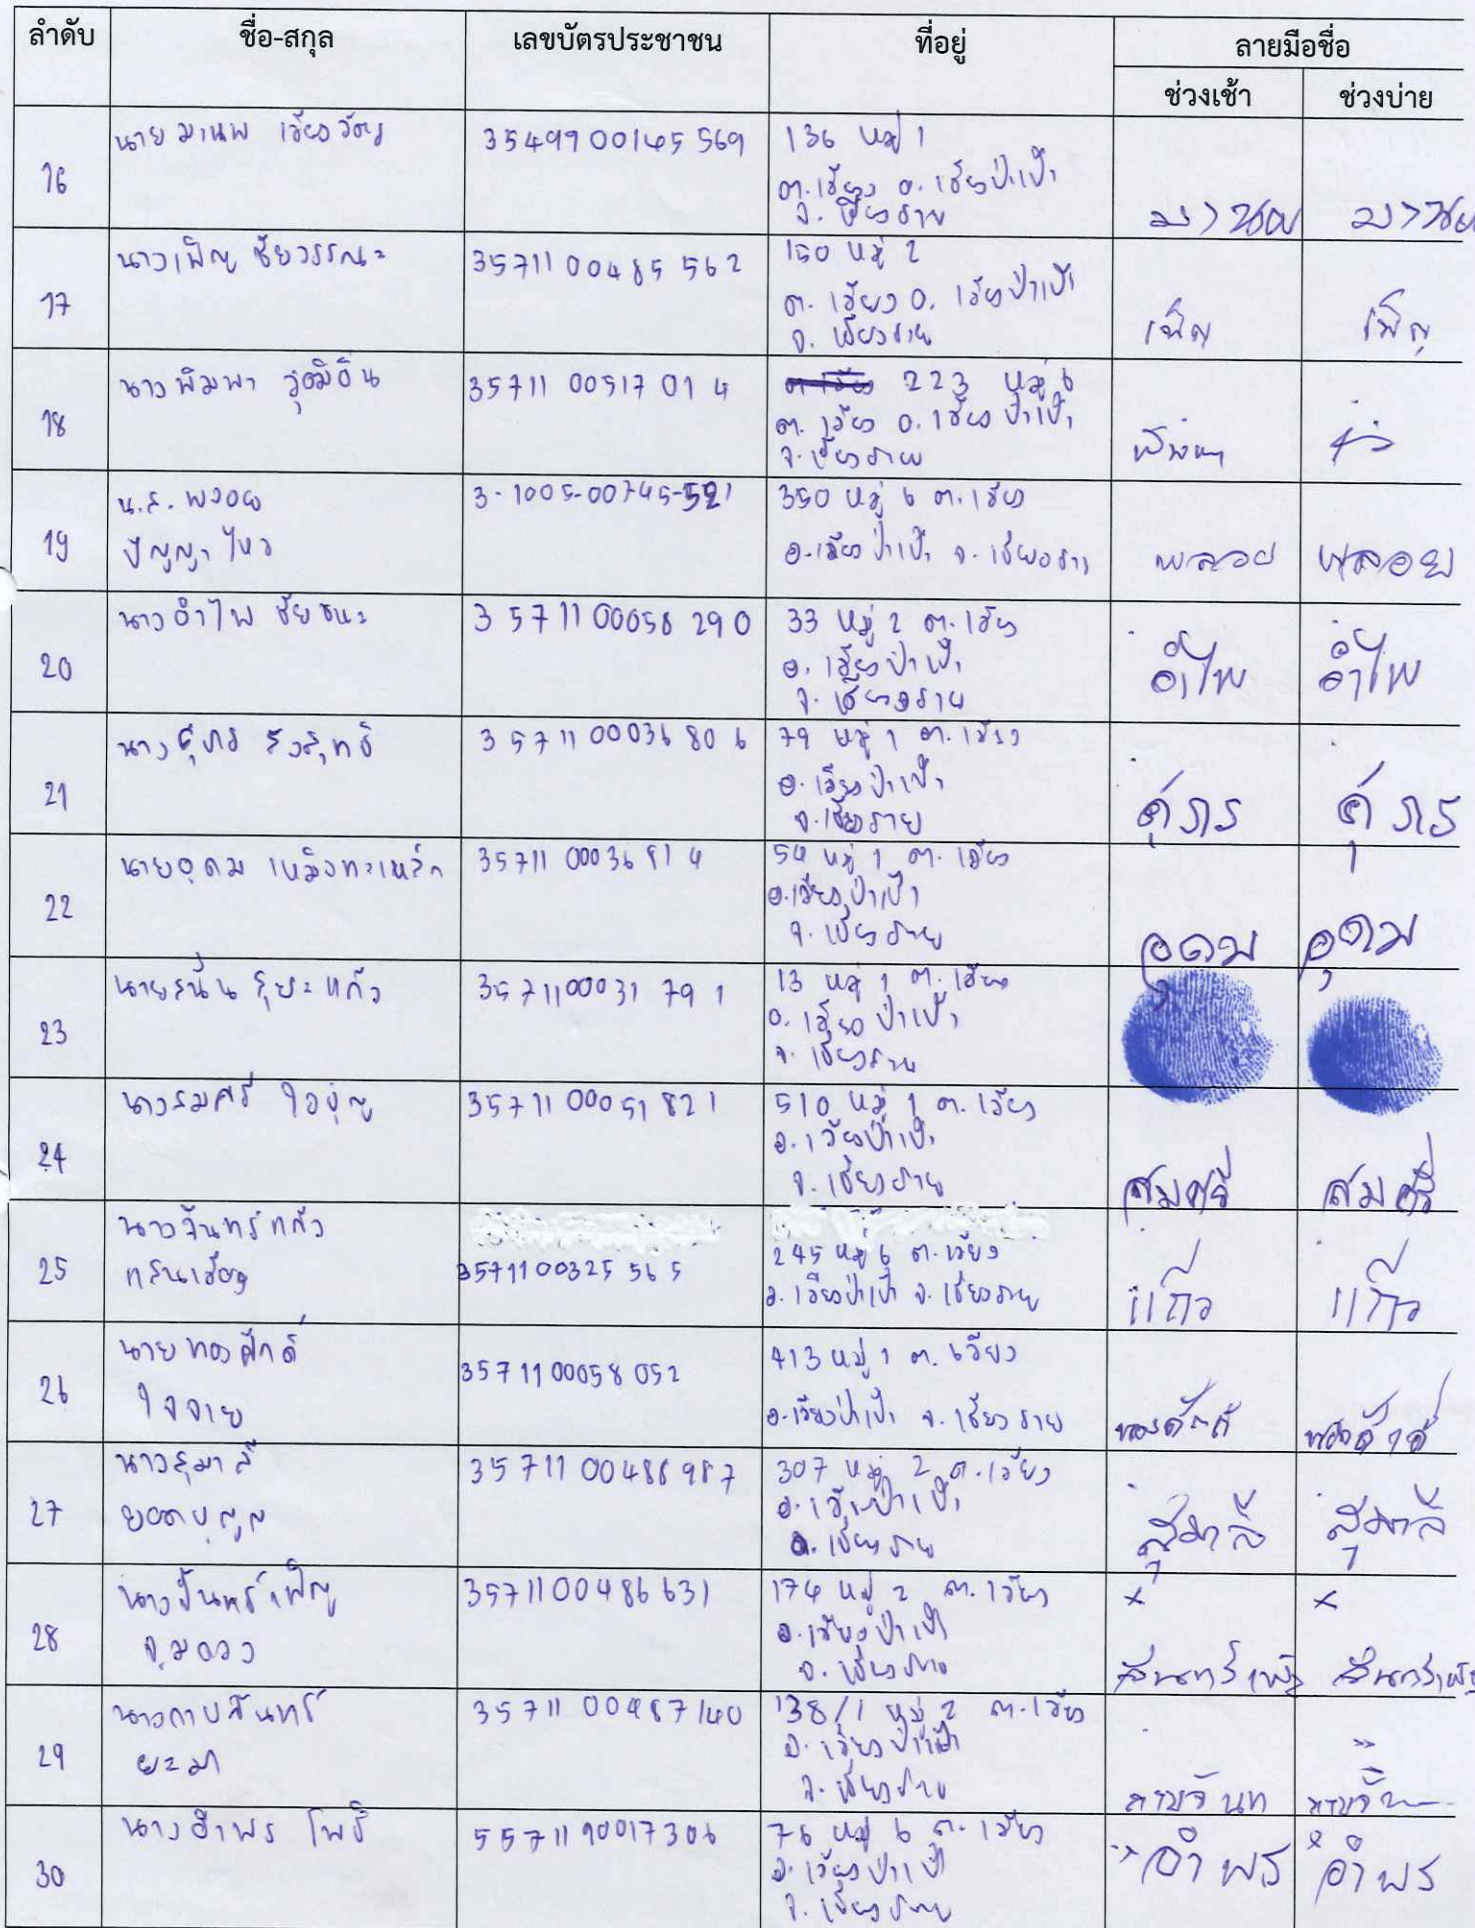 ลำดับ ชื่อ-สกุล เลขบัตรประชาชน ที่อยู่ ลายมือชื่อ
ช่วงเช้า ช่วงบ่าย
16 นายมานพ 3549900145569 136 หมู่ 1
ต.เวียง อ.เวียงป่าเป้า
จ.เชียงราย
17 นางเพ็ญ ชัยวรรณะ 3571100485562 150 หมู่ 2
ต.เวียง อ.เวียงป่าเป้า
จ.เชียงราย เพ็ญ เพ็ญ
18 นางพิมพา วุฒิอิ่น 3571100517014 223 หมู่ 6
ต.เวียง อ.เวียงป่าเป้า
จ.เชียงราย
19 น.ส.พลอย 3-1005-00745-521 350 หมู่ 6 ต.เวียง
ปัญญาไหว อ.เวียงป่าเป้า จ.เชียงราย พลอย พลอย
20 นางอำไพ ชัยชนะ 3571100058290 33 หมู่ 2 ต.เวียง
อ.เวียงป่าเป้า
จ.เชียงราย อำไพ อำไพ
21 3571100036806 79 หมู่ 1 ต.เวียง
อ.เวียงป่าเป้า
จ.เชียงราย
22 นายอุดม เหมืองทะเหล็ก 3571100036914 54 หมู่ 1 ต.เวียง
อ.เวียงป่าเป้า
จ.เชียงราย อุดม อุดม
23 นายสนั่น สุยะแก้ว 3571100031791 13 หมู่ 1 ต.เวียง
อ.เวียงป่าเป้า
จ.เชียงราย
24 นางสมศรี ใจบุญ 3571100051821 510 หมู่ 1 ต.เวียง
อ.เวียงป่าเป้า
จ.เชียงราย สมศรี สมศรี
25 นางจันทร์แก้ว 245 หมู่ 6 ต.เวียง
แสนเวียง 3571100325565 อ.เวียงป่าเป้า จ.เชียงราย แก้ว แก้ว
26 นายทองศักดิ์ 3571100058052 413 หมู่ 1 ต.เวียง
ใจจาย อ.เวียงป่าเป้า จ.เชียงราย ทองศักดิ์ ทองศักดิ์
27 นางสุมาลี 3571100486987 307 หมู่ 2 ต.เวียง
ยอดบุญ อ.เวียงป่าเป้า
จ.เชียงราย สุมาลี สุมาลี
28 นางจันทร์เพ็ญ 3571100486631 174 หมู่ 2 ต.เวียง x x
จุมดวง อ.เวียงป่าเป้า
จ.เชียงราย จันทร์เพ็ญ จันทร์เพ็ญ
29 นางกาบจันทร์ 3571100487140 138/1 หมู่ 2 ต.เวียง
ยะมา อ.เวียงป่าเป้า
จ.เชียงราย กาบจันท
30 นางอำพร โพธิ์ 5571190017306 76 หมู่ 6 ต.เวียง
อ.เวียงป่าเป้า
จ.เชียงราย อำพร อำพร